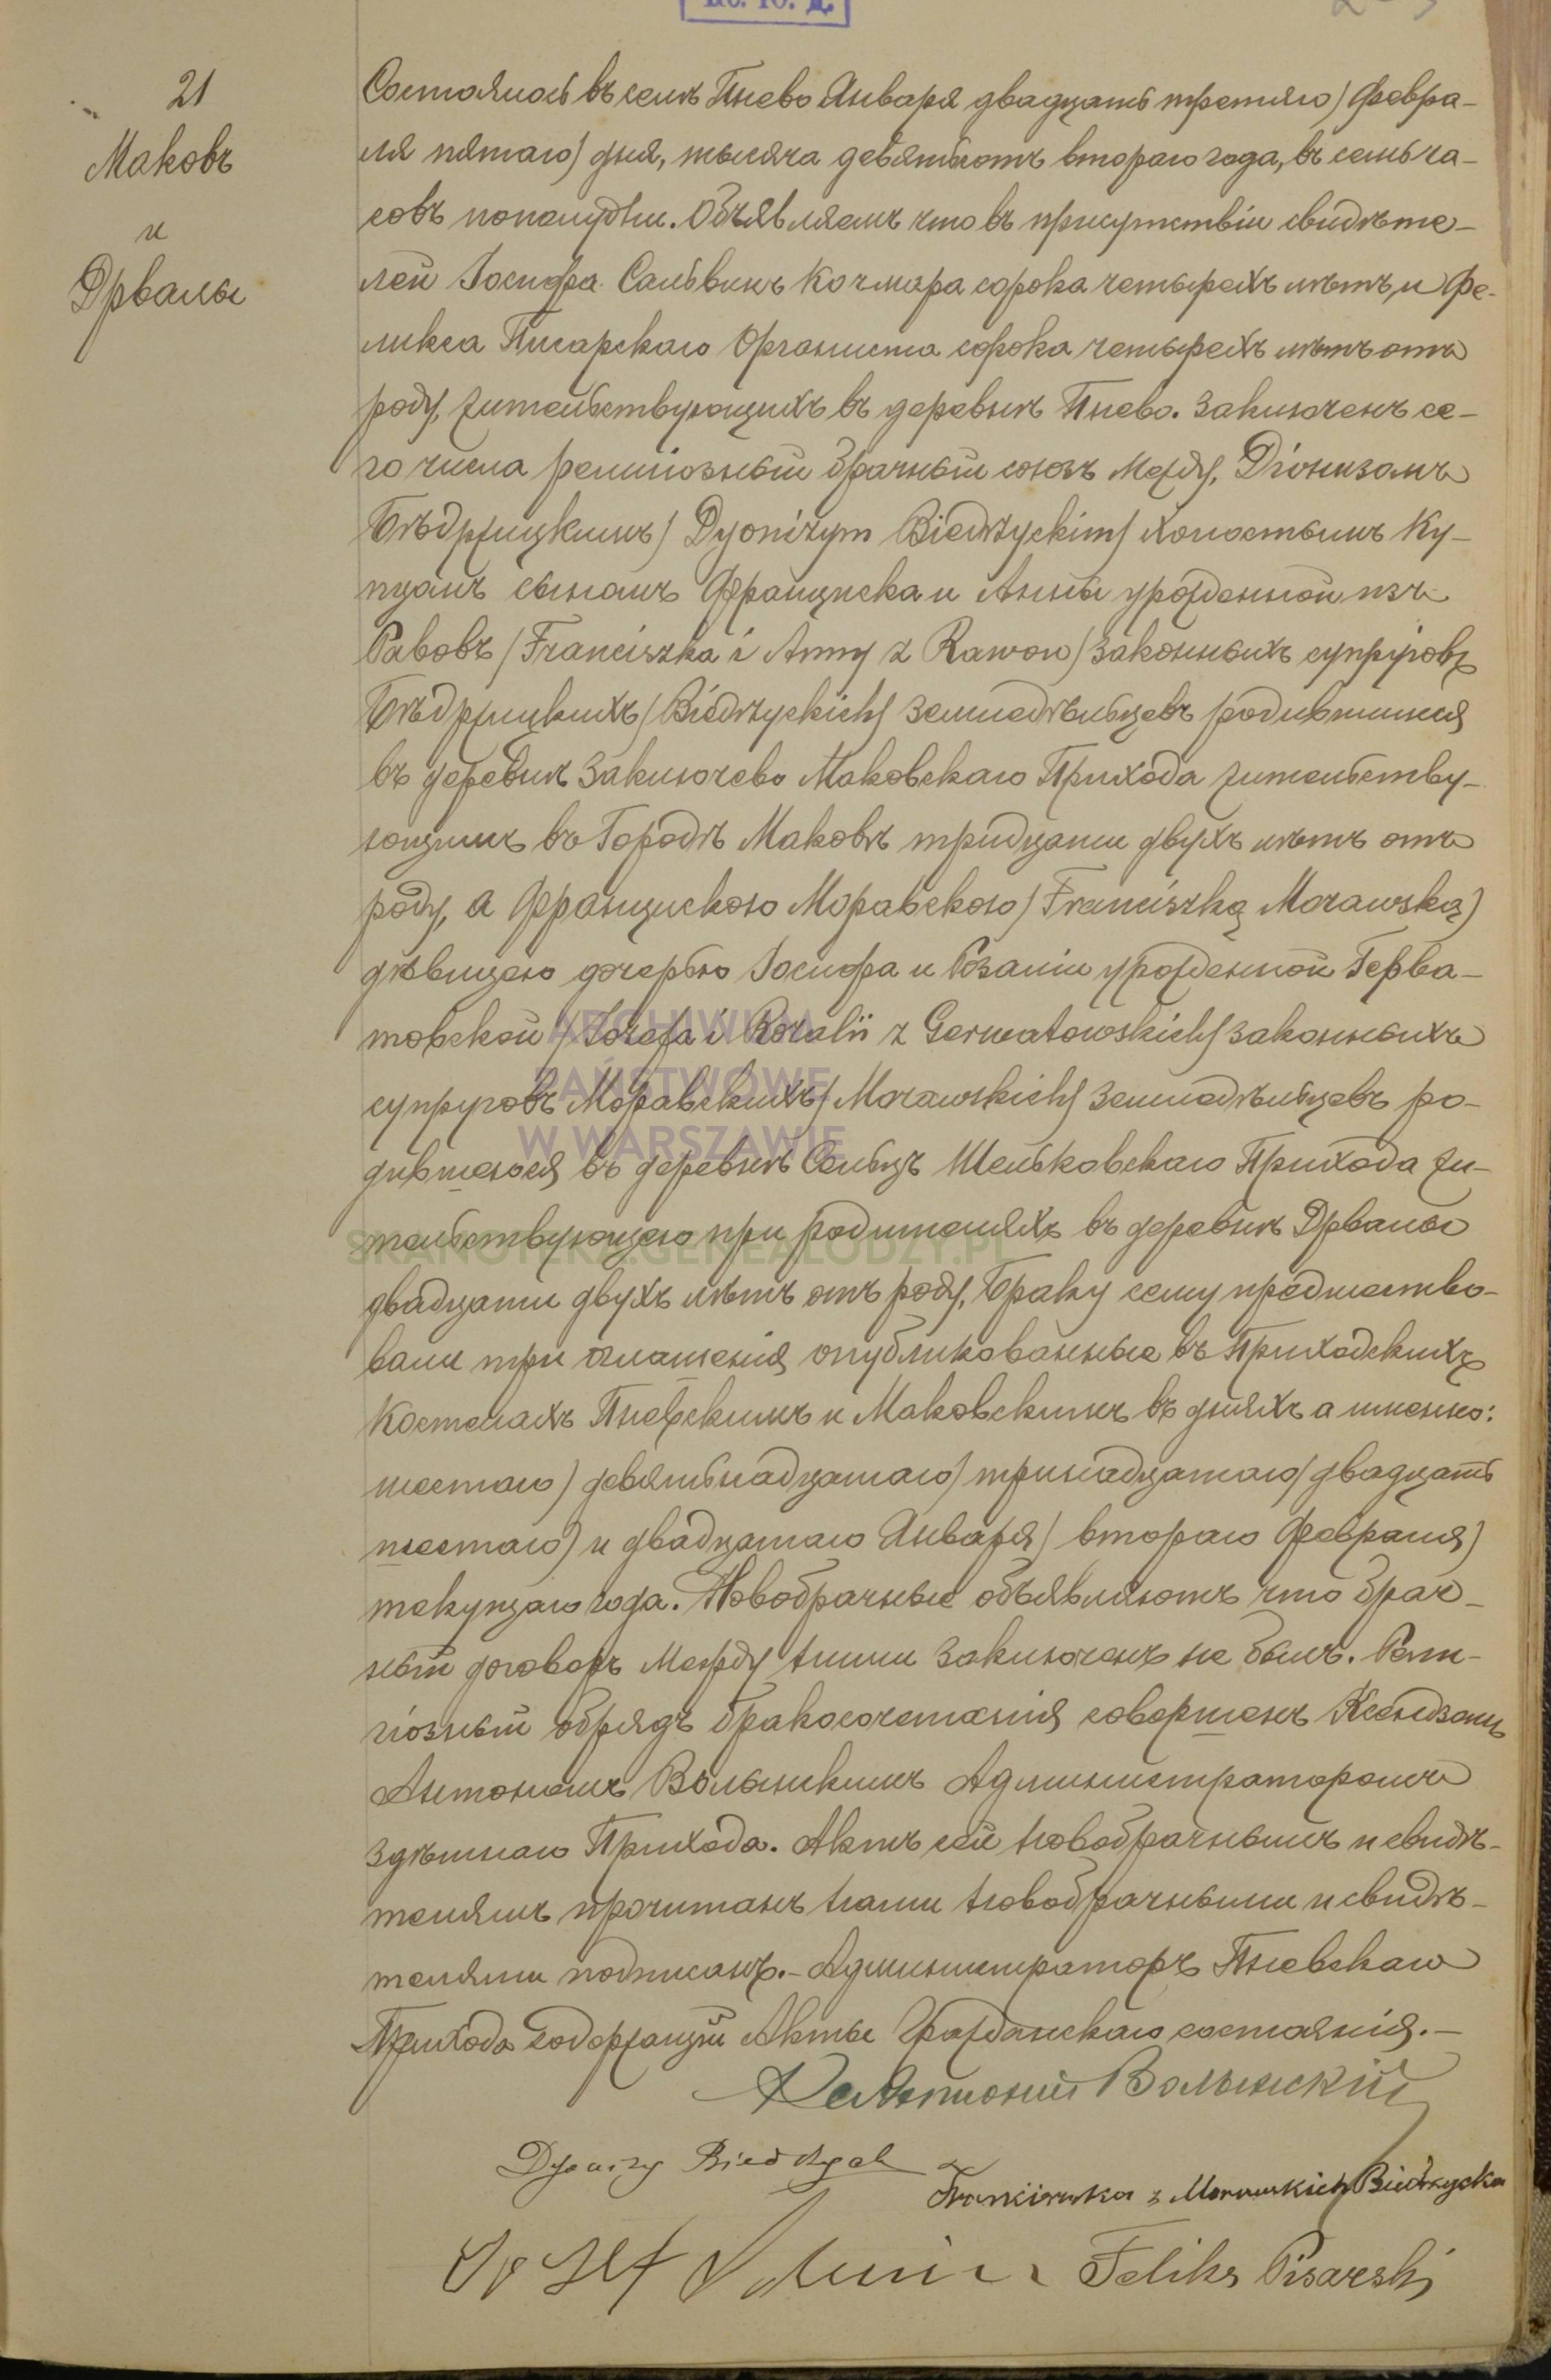 21
Маковъ
и
Дрвалы
Состоялось въ селѣ Пнево Января двадцать третьяго) Февра-
ля пятаго) дня, тысяча девятьсотъ втораго года, въ семь ча-
совъ пополудни. Объявляемъ что въ присутствіи свидѣте-
лей Іосифа Сальвинъ Кочмара сорока четырехъ лѣтъ, и Фе-
ликса Писарскаго Органиста сорока четырехъ лѣтъ отъ
роду, жительствующихъ въ деревнѣ Пнево. Заключенъ се-
го числа религіозный брачный союзъ Между, Діонизомъ
Бѣдржицкимъ) Dyonizym Biedrzyckim) холостымъ Ку-
пцомъ сыномъ Францишка и Анны урожденной изъ
Равовъ (Franciszka i Anny z Rawow) законныхъ супруговъ
Бѣдржицкихъ (Biedrzyckich) земледѣльцевъ родившимся
въ деревнѣ Заключево Маковскаго Прихода жительству-
ющимъ въ Городѣ Маковѣ тридцати двухъ лѣтъ отъ
роду, а Францишкою Моравскою) Franciszką Morawską)
дѣвицею дочерью Іосифа и Розаліи урожденной Герва-
товской (Józefa i Rozalii z Gerwatowskich) законныхъ
супруговъ Моравскихъ) Morawskich) земледѣльцевъ ро-
дившеюся въ деревнѣ Сельцъ Шельковскаго Прихода жи-
тельствующею при родителяхъ въ деревнѣ Дрвалы
двадцати двухъ лѣтъ отъ роду, Браку сему предшество-
вали три оглашенія опубликованные въ Приходскихъ
Костелахъ Пневскимъ и Маковскимъ въ дняхъ а именно:
шестаго) девятьнадцатаго) тринадцатаго) двадцать
шестаго) и двадцатаго Января) втораго Февраля)
текущаго года. Новобрачные объявляютъ что брач-
ный договоръ Между ними заключенъ не былъ. Рели-
гіозный обрядъ бракосочетанія совершенъ Ксендзомъ
Антономъ Волынскимъ Администраторомъ
здѣшнаго Прихода. Актъ сей новобрачнымъ и свидѣ-
телямъ прочитанъ нами новобрачными и свидѣ-
телями подписанъ.- Администраторъ Пневскаго
Прихода Содержащій Акты Гражданскаго состоянія.-
Кс Антоній Волынскій
Dyonizy Biedrzycki
Franciszka z Morawskich Biedrzycka
Józef
Feliks Pisarski
ARCHIWUM
PAŃSTWOWE
W WARSZAWIE
SKANOTEKA.GENEALODZY.PL